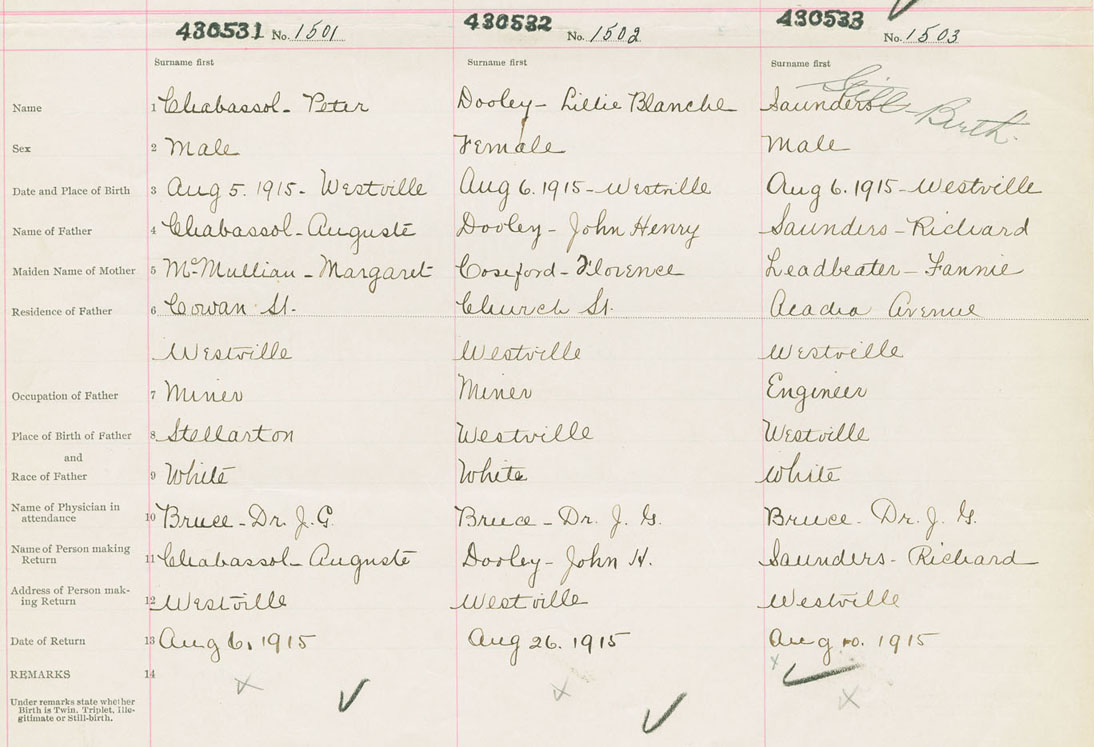 430531 No. 1501 430532 No. 1502 430533 No. 1503
Surname first Surname first Surname first
Name 1 Chabassol - Peter Dooley - Lillie Blanche Saunders Still-Birth.
Sex 2 Male Female Male
Date and Place of Birth 3 Aug 5. 1915 - Westville Aug 6. 1915 - Westville Aug 6. 1915 - Westville
Name of Father 4 Chabassol - Auguste Dooley - John Henry Saunders - Richard
Maiden Name of Mother 5 McMullian - Margaret Coseford - Florence Leadbeater - Fannie
Residence of Father 6 Cowan St. Church St. Acadia Avenue
Westville Westville Westville
Occupation of Father 7 Miner Miner Engineer
Place of Birth of Father 8 Stellarton Westville Westville
and
Race of Father 9 White White White
Name of Physician in
attendance 10 Bruce - Dr. J. G. Bruce - Dr. J. G. Bruce - Dr. J. G.
Name of Person making
Return 11 Chabassol - Auguste Dooley - John H. Saunders - Richard
Address of Person mak-
ing Return 12 Westville Westville Westville
Date of Return 13 Aug 6, 1915 Aug 26. 1915 Aug 10. 1915
REMARKS 14
Under remarks state whether
Birth is Twin, Triplet, Ille-
gitimate or Still-birth.